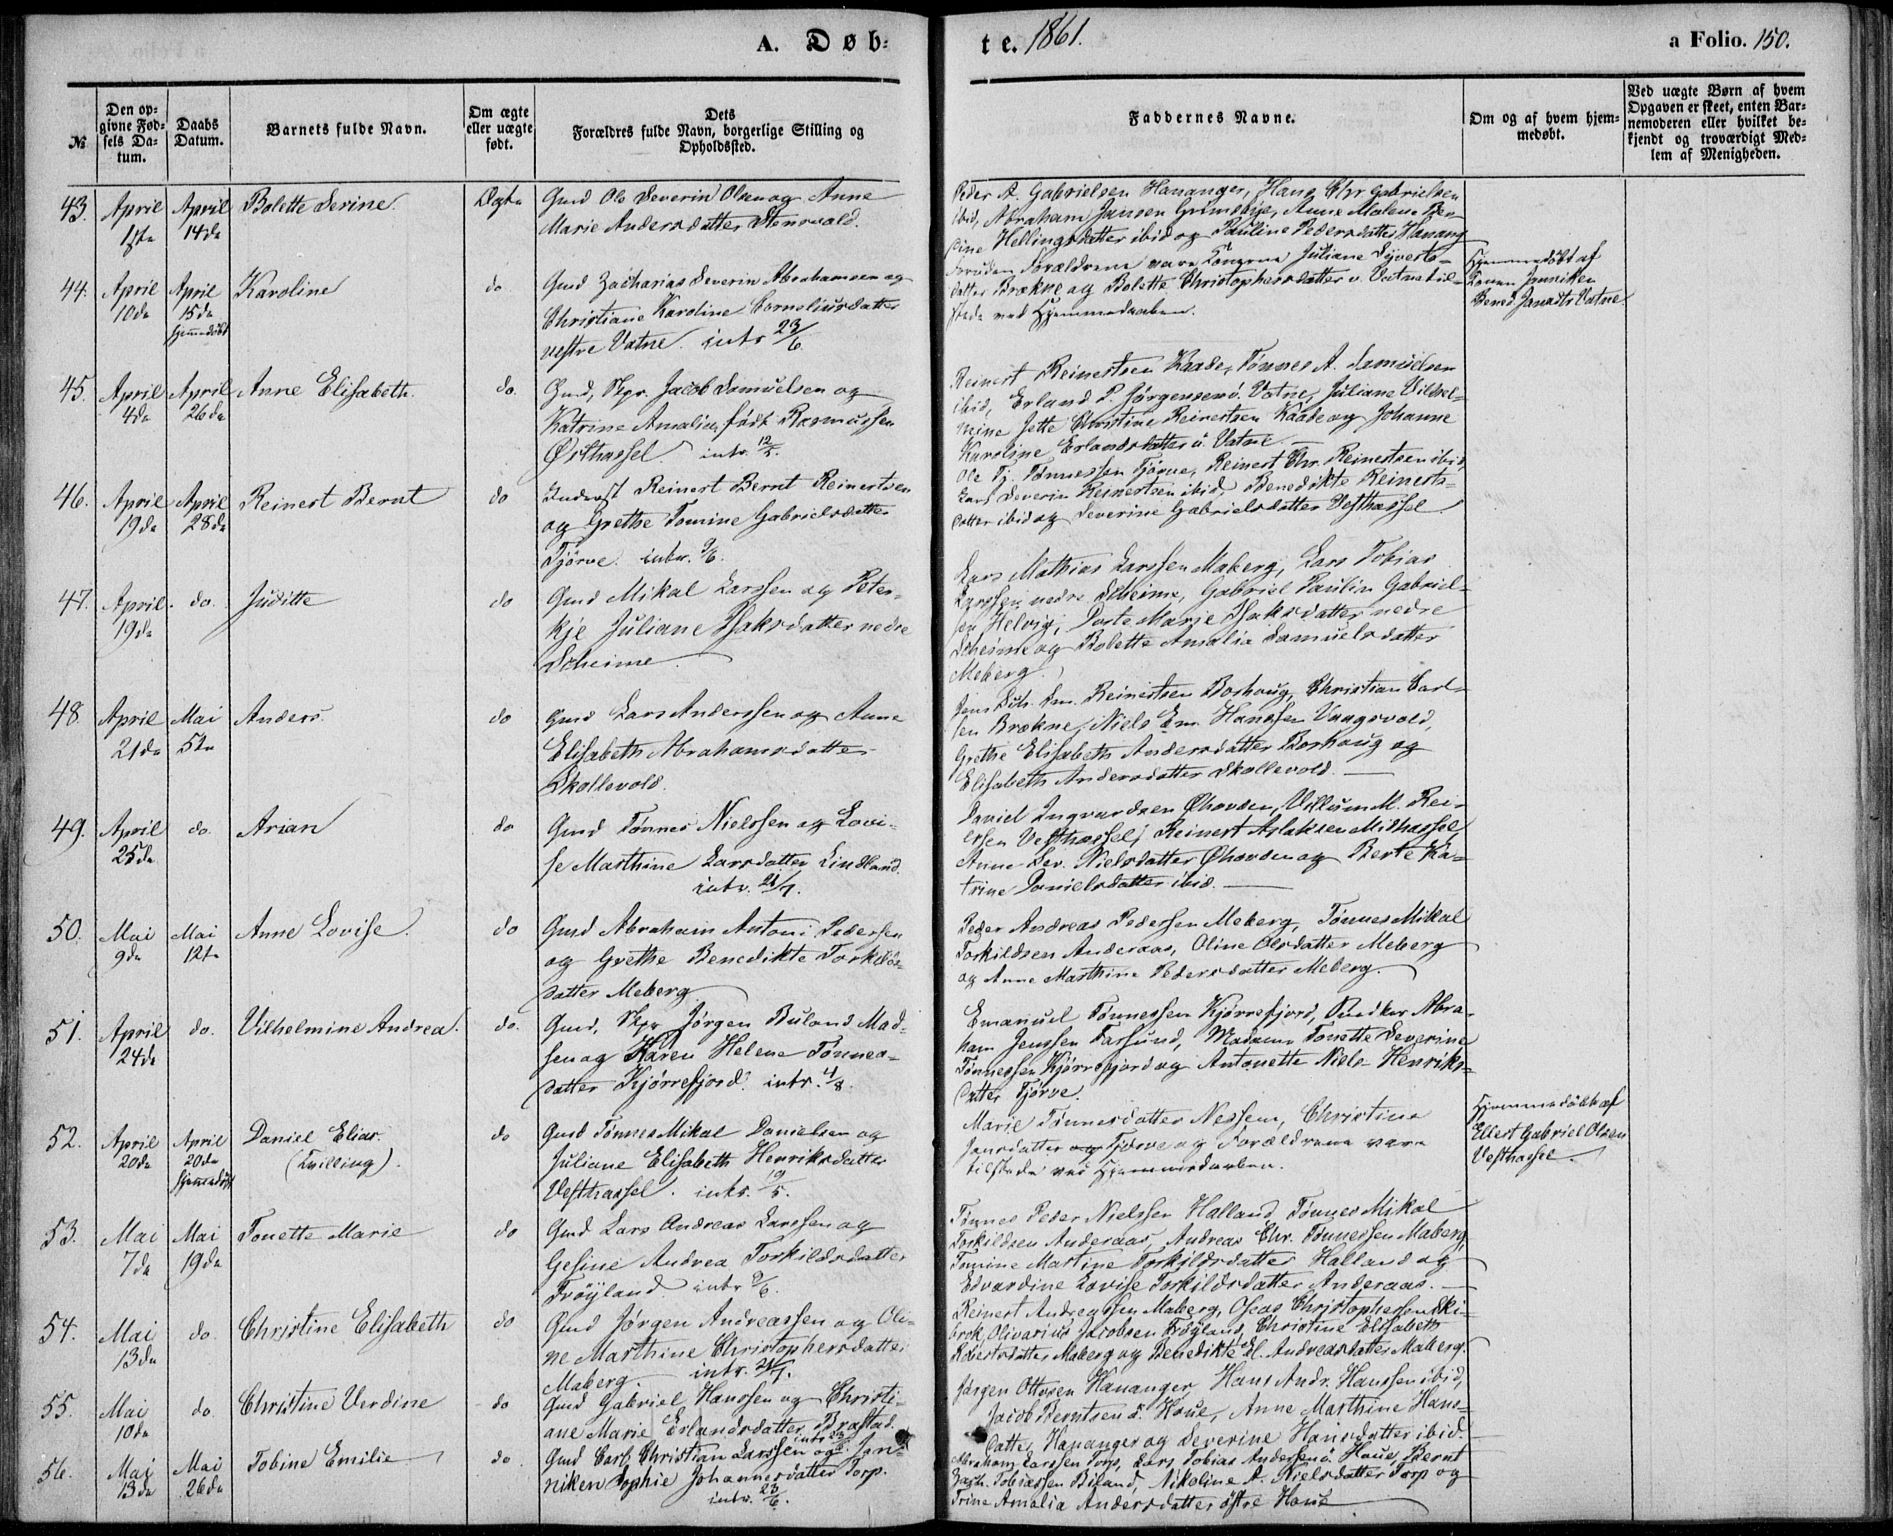 A. Døb=
te. 1861.
a Folio. 150.
№
Den op=
givne Fød=
sels Da=
tum.
Daabs
Datum.
Barnets fulde Navn.
Om ægte
eller uægte
født.
Dets
Forældres fulde Navn, borgerlige Stilling og
Opholdssted.
Faddernes Navne.
Om og af hvem hjem=
medøbt.
Ved uægte Børn af hvem
Opgaven er skeet, enten Bar=
nemoderen eller hvilket be=
kjendt og troværdigt Med=
lem af Menigheden.
43. April April 14de Bolette Serine. Ægte
Gmd Ole Severin Olsen og Anne
Marie Andersdatter Stenvold.
Peder A. Gabrielsen Hananger, Hans Chr Gabrielsen
ibid, Abraham Jansen Grimsbye, Anne Malene Ber=
Hellingsdatter ibid og Pauline Pedersdatter Hanang
44. April 10de April 15de hjemmedøbt Karoline do
Gmd Zacharias Severin Abrahamsen og
Christiane Karoline Corneliusdatter
vestre Vatne. intr 23/6
Foruden Forældrene vare Konerne Juliane Syverts=
datter Brækne og Bolette Christophersdatter v. Vatne til=
stede ved Hjemmedaaben.
Hjemmedøbt af
Konen Jenniken
Bened. Jansdtr Vatne
45. April 4de April 26de Anne Elisabeth. do.
Gmd, Skpr. Jacob Samuelsen og
Katrine Amalie, født Rasmussen
Østhassel intr. 12/5.
Reinert Reinertsen Kaade, Tønnes A. Samuelsen
ibid, Erland P. Jørgensen ö. Vatne, Juliane Vilhel=
mine Jette Christine Reinertsen Kaade og Johanne
Karoline Erlandsdatter ö. Vatne
46. April 19de April 28de Reinert Bernt do
Inderst Reinert Bernt Reinertsen
og Grethe Tomine Gabrielsdatter
Tjørve. intr. 9/6.
Ole Tj. Tønnessen Tjørve, Reinert Chr. Reinertsen ibid,
Lars Severin Reinertsen ibid, Benedikte Reinerts=
datter ibid og Severine Gabrielsdatter Vesthassel
47. April 19de do. Juditte do
Gmd Mikal Larssen og Peter=
kje Juliane Isaksdatter nedre
Skeime.
Lars Mathias Larssen Maberg, Lars Tobias
Larssen nedre Skeime, Gabriel Paulin Gabriel=
sen Helvig, Dorte Marie Isaksdatter nedre
Skeime og Bolette Amalia Samuelsdatter
Meberg.
48 April 21de Mai 5te Anders. do
Gmd Lars Anderssen og Anne
Elisabeth Abrahamsdatter
Skollevold.
Reinertsen Boshoug, Christian Carl=
sen Brækne, Niels Em. Hanssen Vaagsvold,
Grethe Elisabeth Andersdatter Boshoug og
Elisabeth Andersdatter Skollevold.
49. April 25de do. Arian do
Gmd Tønnes Nielssen og Lovi=
se Marthine Larsdatter Lindland.
intr. 21/7.
Daniel Ingvardsen Øhovden, Villum M. Rei=
ersen Vesthassel, Reinert Aslaksen Midhassel
Anne Sev. Nielsdatter Øhovden og Berte Ka=
trine Danielsdatter ibid.
50. Mai 9de Mai 12te Anne Lovise. do
Gmd Abraham Antoni Pedersen
og Grethe Benedikte Torkilds=
datter Meberg
Peder Andreas Pedersen Meberg, Tønnes Mikal
Torkildsen Anderaas, Oline Olsdatter Meberg
og Anne Marthine Pedersdatter Meberg.
51. April 24de do. Vilhelmine Andrea. do.
Gmd, Skpr Jørgen Buland Mad=
sen og Karen Helene Tønnes=
datter Kjørrefjord. intr. 4/8.
Emanuel Tønnessen Kjørrefjord, Abra=
ham Jenssen Farsund, Madam Tonette Severine
Tønnessen Kjørrefjord og Antonette Niels Henriks=
datter Tjørve.
52. April 20de April 20de hjemmedøbt Daniel Elias. (Tvilling). do
Gmd Tønnes Mikal Danielsen og
Juliane Elisabeth Henriksdatter
Vesthassel. intr. 19/5.
Marie Tønnesdatter Nessem, Christine
Jansdatter Tjørve og Forældrene vare
tilstede ved Hjemmedaaben.
Hjemmedøbt af
Ellert Gabriel Olsen
Vesthassel.
53. Mai 7de Mai 19de Tonette Marie do
Gmd Lars Andreas Larssen og
Gesine Andrea Torkildsdatter
Frøyland intr 9/6.
Tønnes Peder Nielssen Halland, Tønnes Mikal
Torkildsen Anderaas, Andreas Chr. Tønnessen Maberg,
Tomine Martine Torkildsdatter Halland og
Edvardine Lovise Torkildsdatter Anderaas.
54. Mai 13de do. Christine Elisabeth do
Gmd Jørgen Andreassen og Oli=
ne Marthine Christophersdatter
Maberg. intr. 21/7.
Reinert Andreassen Maberg, Oscar Christophersen Ski=
brok, Olivarius Jacobsen Frøyland, Christine Elisabeth
Robertsdatter Maberg og Benedikte El. Andreasdatter Maberg.
55. Mai 10de do. Christine Verdine do
Gmd Gabriel Hanssen og Christi=
ane Marie Erlandsdatter Brastad.
Jørgen Ottosen Hananger, Hans Andr. Hanssen ibid,
Jacob Berntsen ö. Houe, Anne Marthine Hans=
datter Hananger og Severine Hansdatter ibid.
56. Mai 13de Mai 26de Tobine Emilie do.
Gmd Carl Christian Larssen og Jan=
niken Sophie Johannesdatter Torp.
intr. 23/6.
Abraham Larssen Torp, Lars Tobias Andersen ö. Houe, Bernt
Zach. Tobiassen Biland, Nikoline A. Nielsdatter Torp og
Trine Amalia Andersdatter østre Houe